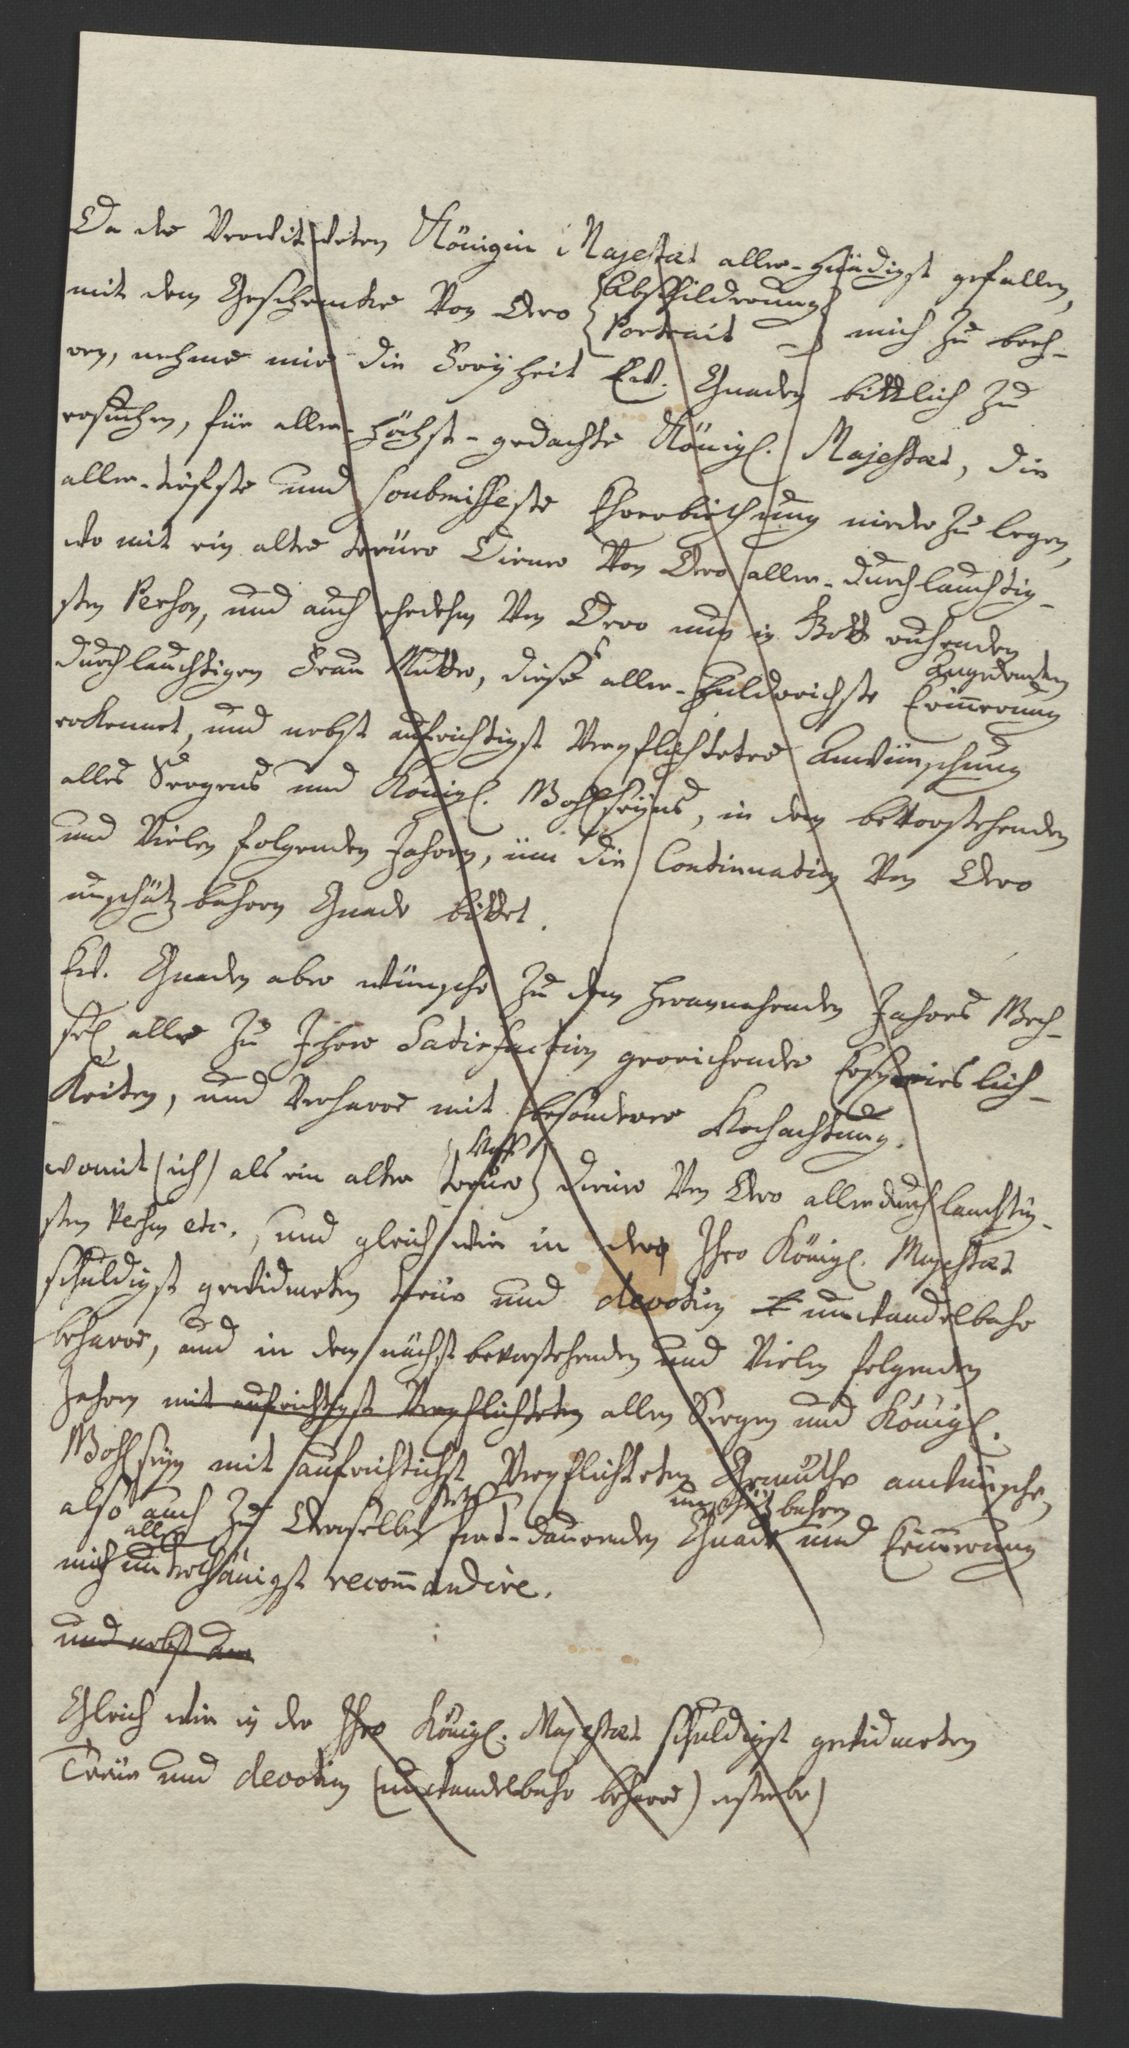 Da der Verwittweten Königin Majestæt aller-gnädigst gefallen,
mit dem Geschencke Von Dero Abschilderung
Portrait mich zu beeh-
ren, nehme mir die Freÿheit Ew. Gnaden bittlich zu
ersuchen, für aller-höchst-gedachte Königl. Majestæt, die
aller-tiefste und soubmisseste Ehrerbiethung nieder zu legen,
wo mit ein alter treüer Diener Von Dero aller-durchlauchtig-
sten Persohn, und auch ehedehm Von Dero nun in Gott ruhenden
durchlauchtigen Frau Mutter, dieses aller-huldreichste Erinnerung
Angedencken
erkennet, und nebst aufrichtigst Verpflichteter Anwünschung
alles Seegens und Königl. Wohlseÿns, in dem beVorstehenden
und Vielen folgenden Jahren, um die Continuation Von Dero
unschätzbahren Gnade bittet.
Ew. Gnaden aber wünsche zu dem herannahenden Jahres Wech-
sel, alle zu Ihrer Satisfaction gereichende Ersprieslich-
Keiten, und Verharre mit besonderer Hochachtung.
womit (ich) als ein alter (treüer) Diener Von Dero allerdurchlauchtig-
sten Persohn etc., und gleich wie in der Ihro Königl. Majestæt
schuldigst gewidmeten treüe und devotion unwandelbahr
beharre, und in dem nächst bevorstehenden und Vielen folgenden
Jahren mit aufrichtigst Verpflichteten allen Seegen und Königl.
Wohlseÿn mit aufrichtichst Verpflichteten Gemüthe anwünsche,
also auch zu Deroselben fort-daurenden Gnade und Erinnerung
unschätzbahren
aller
mich unterthänigst recommandire.
und nebst dem
Gleich wie in der Ihro Königl. Majestæt schuldigst gewidmeten
Treüe und devotion (unwandelbahr beharre) ersterbe)